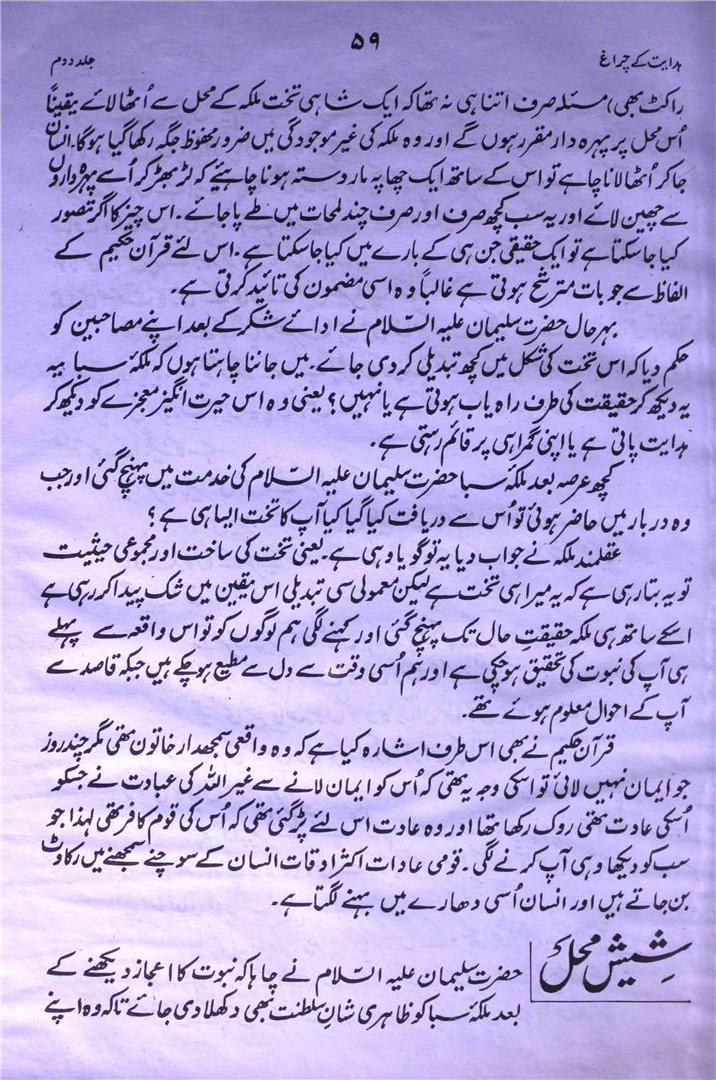 ہدایت کے چراغ
۵۹
جلد دوم
راکٹ بھی) مسئلہ صرف اتنا ہی نہ تھا کہ ایک شاہی تخت ملکہ کے محل سے اُٹھا لائے یقیناً
اُس محل پر پہرہ دار مقرر ہوں گے اور وہ ملکہ کی غیر موجودگی میں ضرور محفوظ جگہ رکھا گیا ہوگا۔ انسان
جا کر اُٹھا لانا چاہے تو اس کے ساتھ ایک چھاپہ مار دستہ ہونا چاہیئے کہ لڑ بھڑ کر اُسے پہرہ داروں
سے چھین لائے اور یہ سب کچھ صرف اور صرف چند لمحات میں طے پا جائے۔ اس چیز کا اگر تصور
کیا جا سکتا ہے تو ایک حقیقی جن ہی کے بارے میں کیا جا سکتا ہے۔ اس لئے قرآن حکیم کے
الفاظ سے جو بات مترشح ہوتی ہے غالباً وہ اسی مضمون کی تائید کرتی ہے۔
بہرحال حضرت سلیمان علیہ السّلام نے ادائے شکر کے بعد اپنے مصاحبین کو
حکم دیا کہ اس تخت کی شکل میں کچھ تبدیلی کر دی جائے۔ میں جاننا چاہتا ہوں کہ ملکۂ سبا یہ
یہ دیکھ کر حقیقت کی طرف راہ یاب ہوتی ہے یا نہیں؟ یعنی وہ اس حیرت انگیز معجزے کو دیکھ کر
ہدایت پاتی ہے یا اپنی گمراہی پر قائم رہتی ہے۔
کچھ عرصہ بعد ملکۂ سبا حضرت سلیمان علیہ السّلام کی خدمت میں پہنچ گئی اور جب
وہ دربار میں حاضر ہوئی تو اُس سے دریافت کیا گیا کیا آپ کا تخت ایسا ہی ہے؟
عقلمند ملکہ نے جواب دیا یہ تو گویا وہی ہے۔ یعنی تخت کی ساخت اور مجموعی حیثیت
تو یہ بتا رہی ہے کہ یہ میرا ہی تخت ہے لیکن معمولی سی تبدیلی اس یقین میں شک پیدا کر رہی ہے
اسکے ساتھ ہی ملکہ حقیقتِ حال تک پہنچ گئی اور کہنے لگی ہم لوگوں کو تو اس واقعہ سے پہلے
ہی آپ کی نبوت کی تحقیق ہو چکی ہے اور ہم اُسی وقت سے دل سے مطیع ہو چکے ہیں جبکہ قاصد سے
آپ کے احوال معلوم ہوئے تھے۔
قرآن حکیم نے بھی اس طرف اشارہ کیا ہے کہ وہ واقعی سمجھدار خاتون تھی مگر چند روز
جو ایمان نہیں لائی تو اسکی وجہ یہ تھی کہ اُس کو ایمان لانے سے غیر اللہ کی عبادت نے جسکو
اُسکی عادت تھی روک رکھا تھا اور وہ عادت اس لئے پڑ گئی تھی کہ اُس کی قوم کافر تھی لہٰذا جو
سب کو دیکھا وہی آپ کرنے لگی۔ قومی عادات اکثر اوقات انسان کے سوچنے سمجھنے میں رکاوٹ
بن جاتے ہیں اور انسان اُسی دھارے میں بہنے لگتا ہے۔
شیش محل
حضرت سلیمان علیہ السّلام نے چاہا کہ نبوت کا اعجاز دیکھنے کے
بعد ملکۂ سبا کو ظاہری شانِ سلطنت بھی دکھلا دی جائے تاکہ وہ اپنے